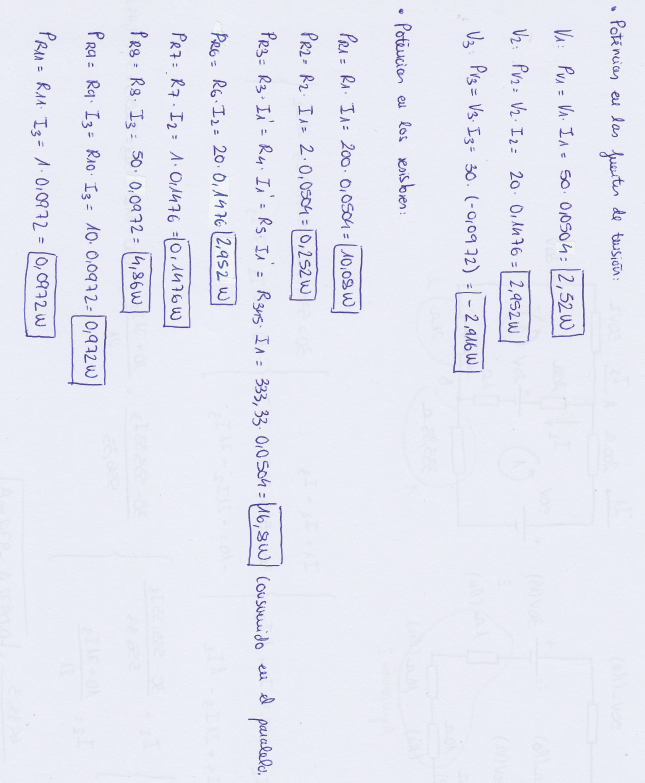 • Potencias en las fuentes de tensión:
V1: PV1 = V1 · I1 = 50 · 0,0504 = 2,52W
V2: PV2 = V2 · I2 = 20 · 0,1476 = 2,952W
V3: PV3 = V3 · I3 = 30 · (-0,0972) = -2,916W
• Potencias en los resistores:
PR1 = R1 · I1 = 200 · 0,0504 = 10,08W
PR2 = R2 · I1 = 2 · 0,0504 = 0,252W
PR3 = R3 · I1' = R4 · I1' = R5 · I1' = R345 · I1 = 333,33 · 0,0504 = 16,8W consumido en el paralelo.
PR6 = R6 · I2 = 20 · 0,1476 2,952W
PR7 = R7 · I2 = 1 · 0,1476 = 0,1476W
PR8 = R8 · I3 = 50 · 0,0972 = 4,86W
PR9 = R9 · I3 = R10 · I3 = 10 · 0,0972 = 0,972W
PR11 = R11 · I3 = 1 · 0,0972 = 0,0972W